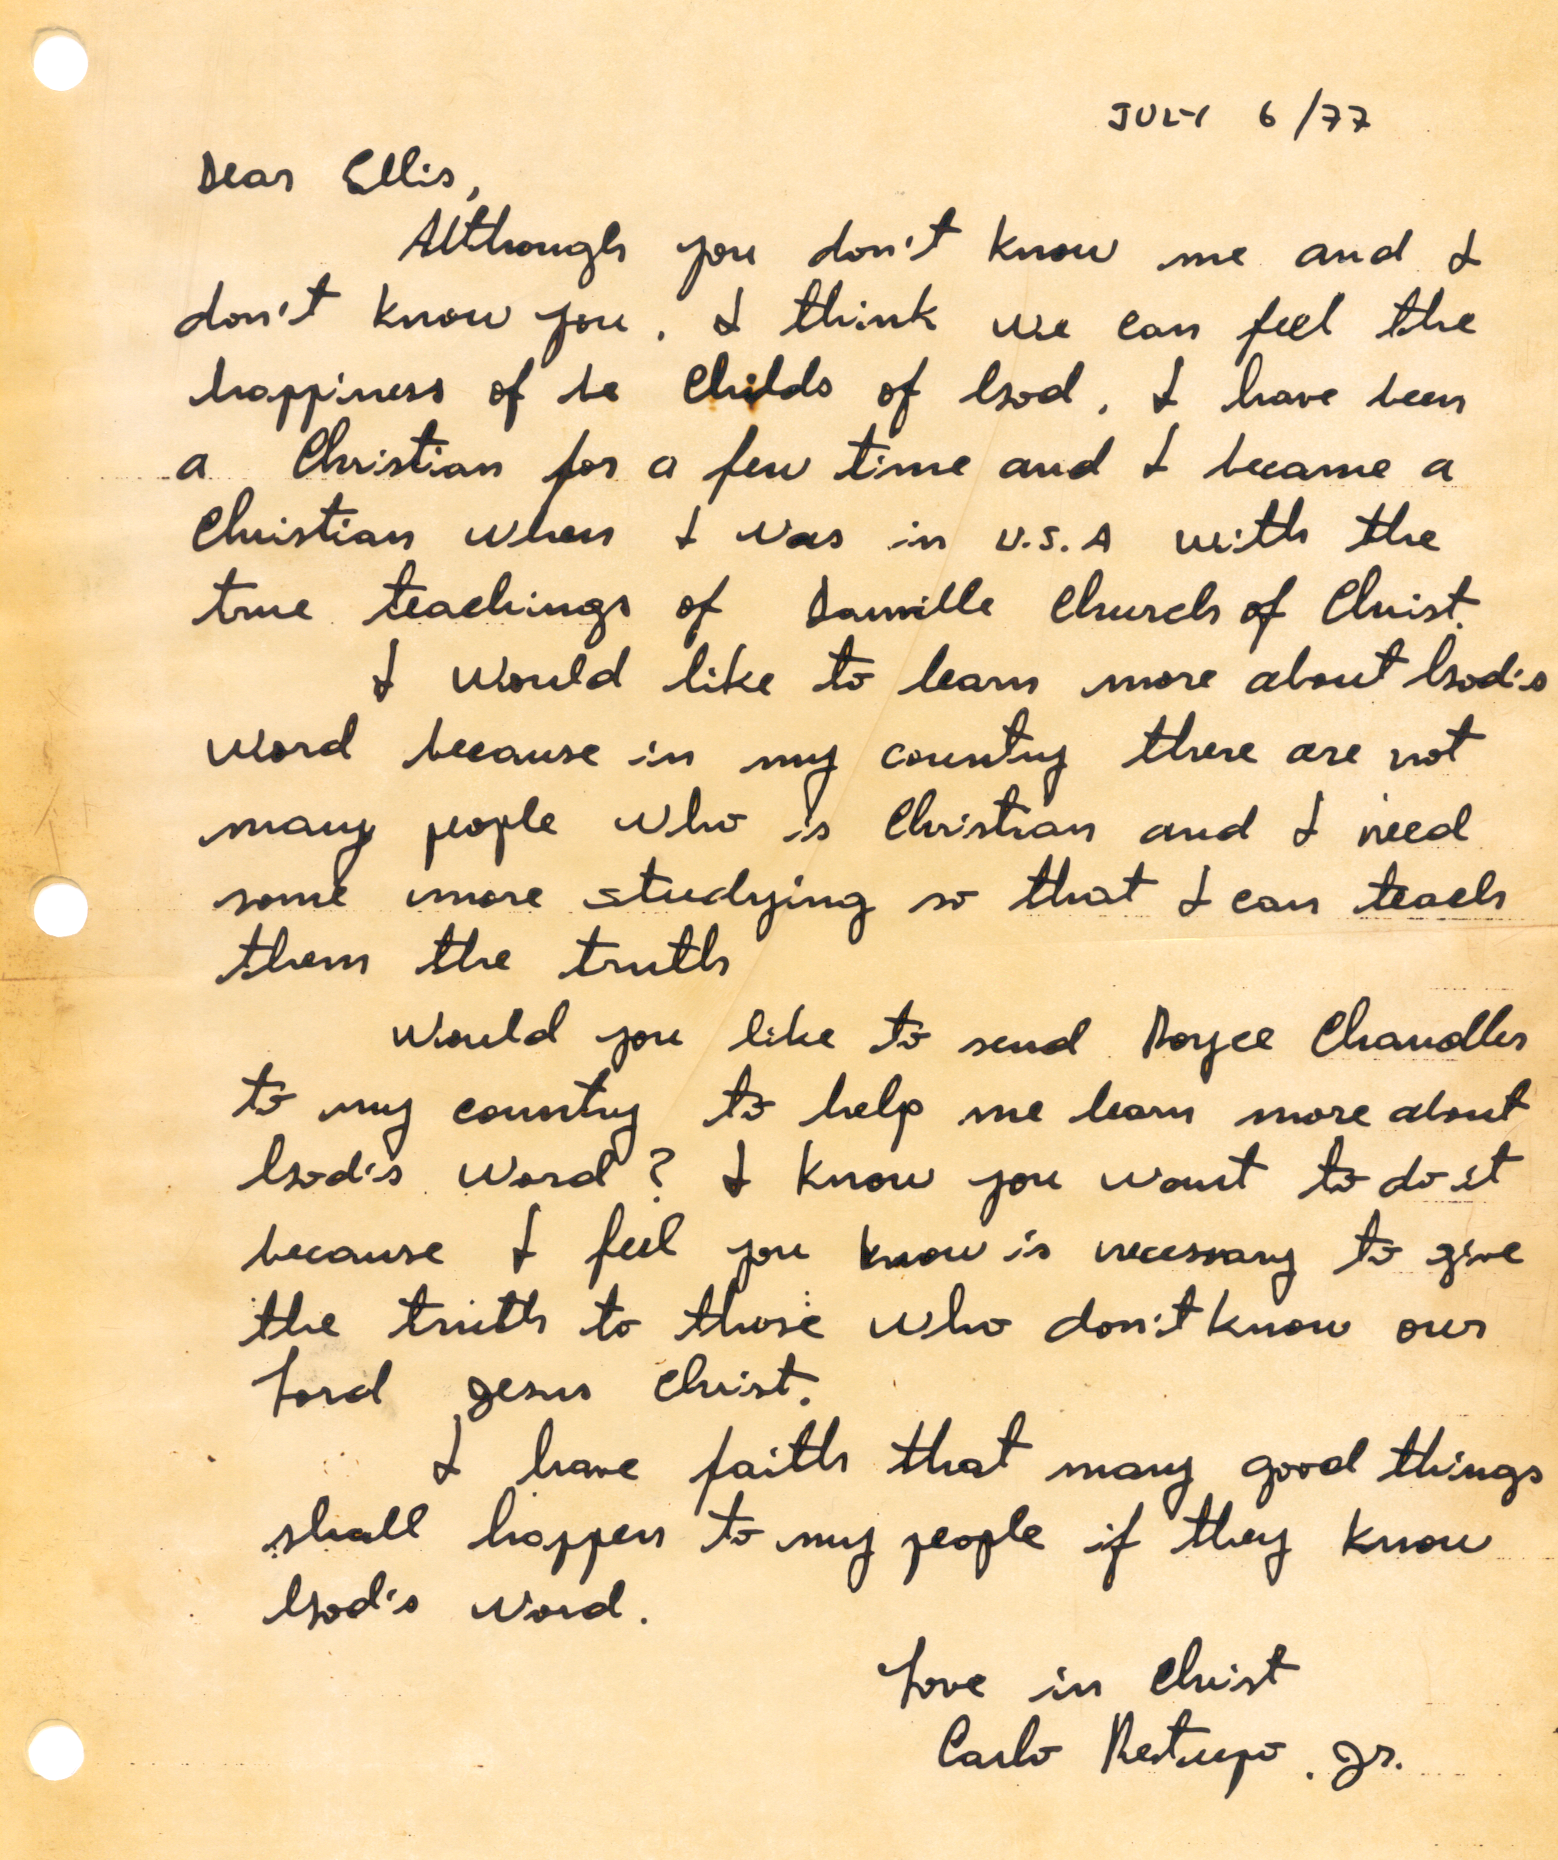 JULY 6/77
Dear Ellis,
Although you don't know me and I
don't know you, I think we can feel the
happiness of be Childs of God. I have been
a Christian for a few time and I became a
Christian when I was in U.S.A with the
true teachings of Danville Church of Christ.
I would like to learn more about God's
word because in my country there are not
many people who is Christian and I need
some more studying so that I can teach
them the truth
Would you like to send Royce Chandler
to my country to help me learn more about
God's word? I know you want to do it
because I feel you know is necessary to give
the truth to those who don't know our
Lord Jesus Christ.
I have faith that many good things
shall happen to my people if they know
God's word.
Love in Christ
Carlo Restrepo. Jr.